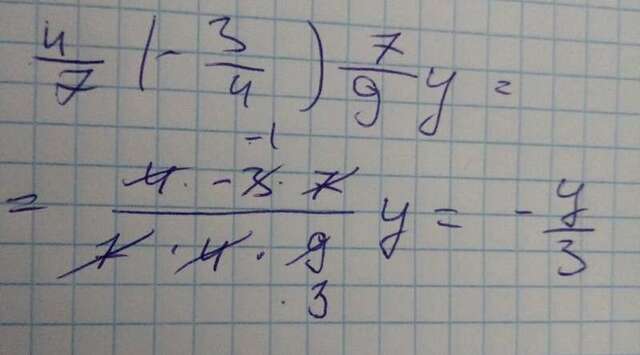 4/7 (- 3/4) 7/9 y =
-1
= 4 · -3 · 7 / 7 · 4 · 9 y = - y/3
· 3